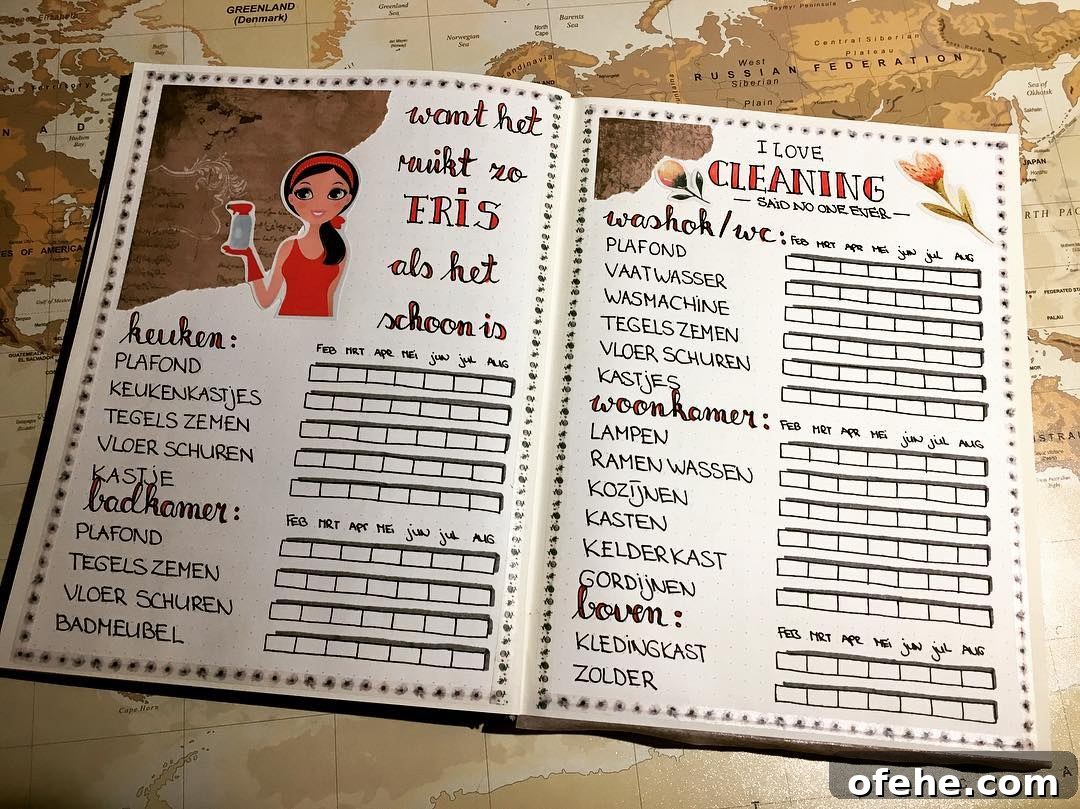 GREENLAND
(Denmark)
Greenland
Sea
Barents
Sea
Norwegian
Sea
North
Cape
Central Siberian
Plateau
West
Siberian
Plain
RUSSIAN FEDERATION
Sea of
Okhotsk
Baffin
Bay
Hudson
Bay
JAPAN
Cape Horn
want het
ruikt zo
FRIS
als het
schoon is
keuken:
FEB MRT APR MEI jun jul AUG
PLAFOND
KEUKENKASTJES
TEGELS ZEMEN
VLOER SCHUREN
KASTJE
badkamer:
FEB MRT APR MEI jun jul AUG
PLAFOND
TEGELS ZEMEN
VLOER SCHUREN
BADMEUBEL
I LOVE
CLEANING
— SAID NO ONE EVER —
washok/wc:
FEB MRT APR MEI jun jul AUG
PLAFOND
VAATWASSER
WASMACHINE
TEGELS ZEMEN
VLOER SCHUREN
KASTJES
woonkamer:
FEB MRT APR MEI jun jul AUG
LAMPEN
RAMEN WASSEN
KOZIJNEN
KASTEN
KELDERKAST
GORDIJNEN
boven:
FEB MRT APR MEI jun jul AUG
KLEDINGKAST
ZOLDER
ofehe.com